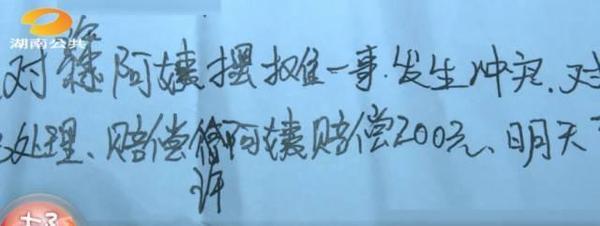 湖南公共
对徐阿姨摆摊一事.发生冲突.对
处理、赔偿 阿姨赔偿200元、明天
许